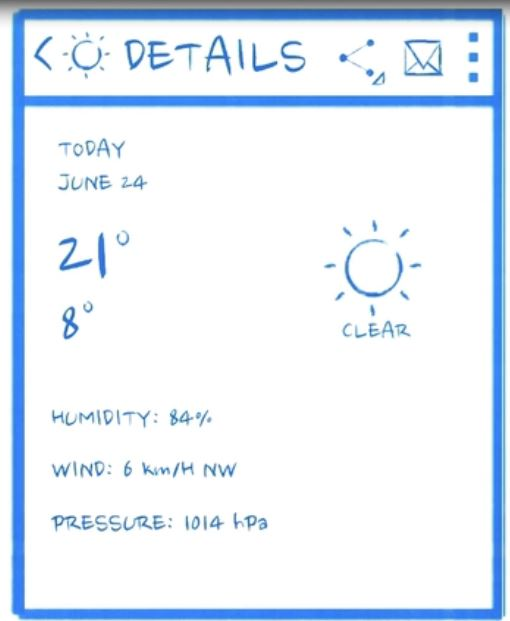 DETAILS
TODAY
JUNE 24
21°
8°
CLEAR
HUMIDITY: 84%
WIND: 6 km/H NW
PRESSURE: 1014 hPa